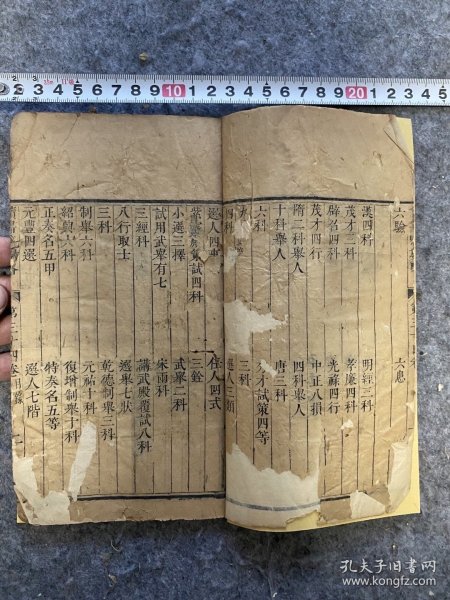 六驗
六息
漢四科
明經三科
茂才三科
孝廉四科
辟名四科
光祿四行
茂才四行
中正八損
隋二科舉人
四科舉人
十科舉人
唐三科
六科
才試策四等
三科
四科
選人三類
選人四
任人四式
試四科
三銓
小選三擇
武舉二科
試用武舉有七
宋兩科
三經科
講武殿覆試八科
八行取士
選舉七狀
三科
乾德制舉三科
制舉六科
元祐十科
紹興六科
復增制舉十科
正奏名五甲
特奏名五等
元豐四選
選人七階
第三十四卷
孔夫子旧书网
www.kongfz.com
10
20